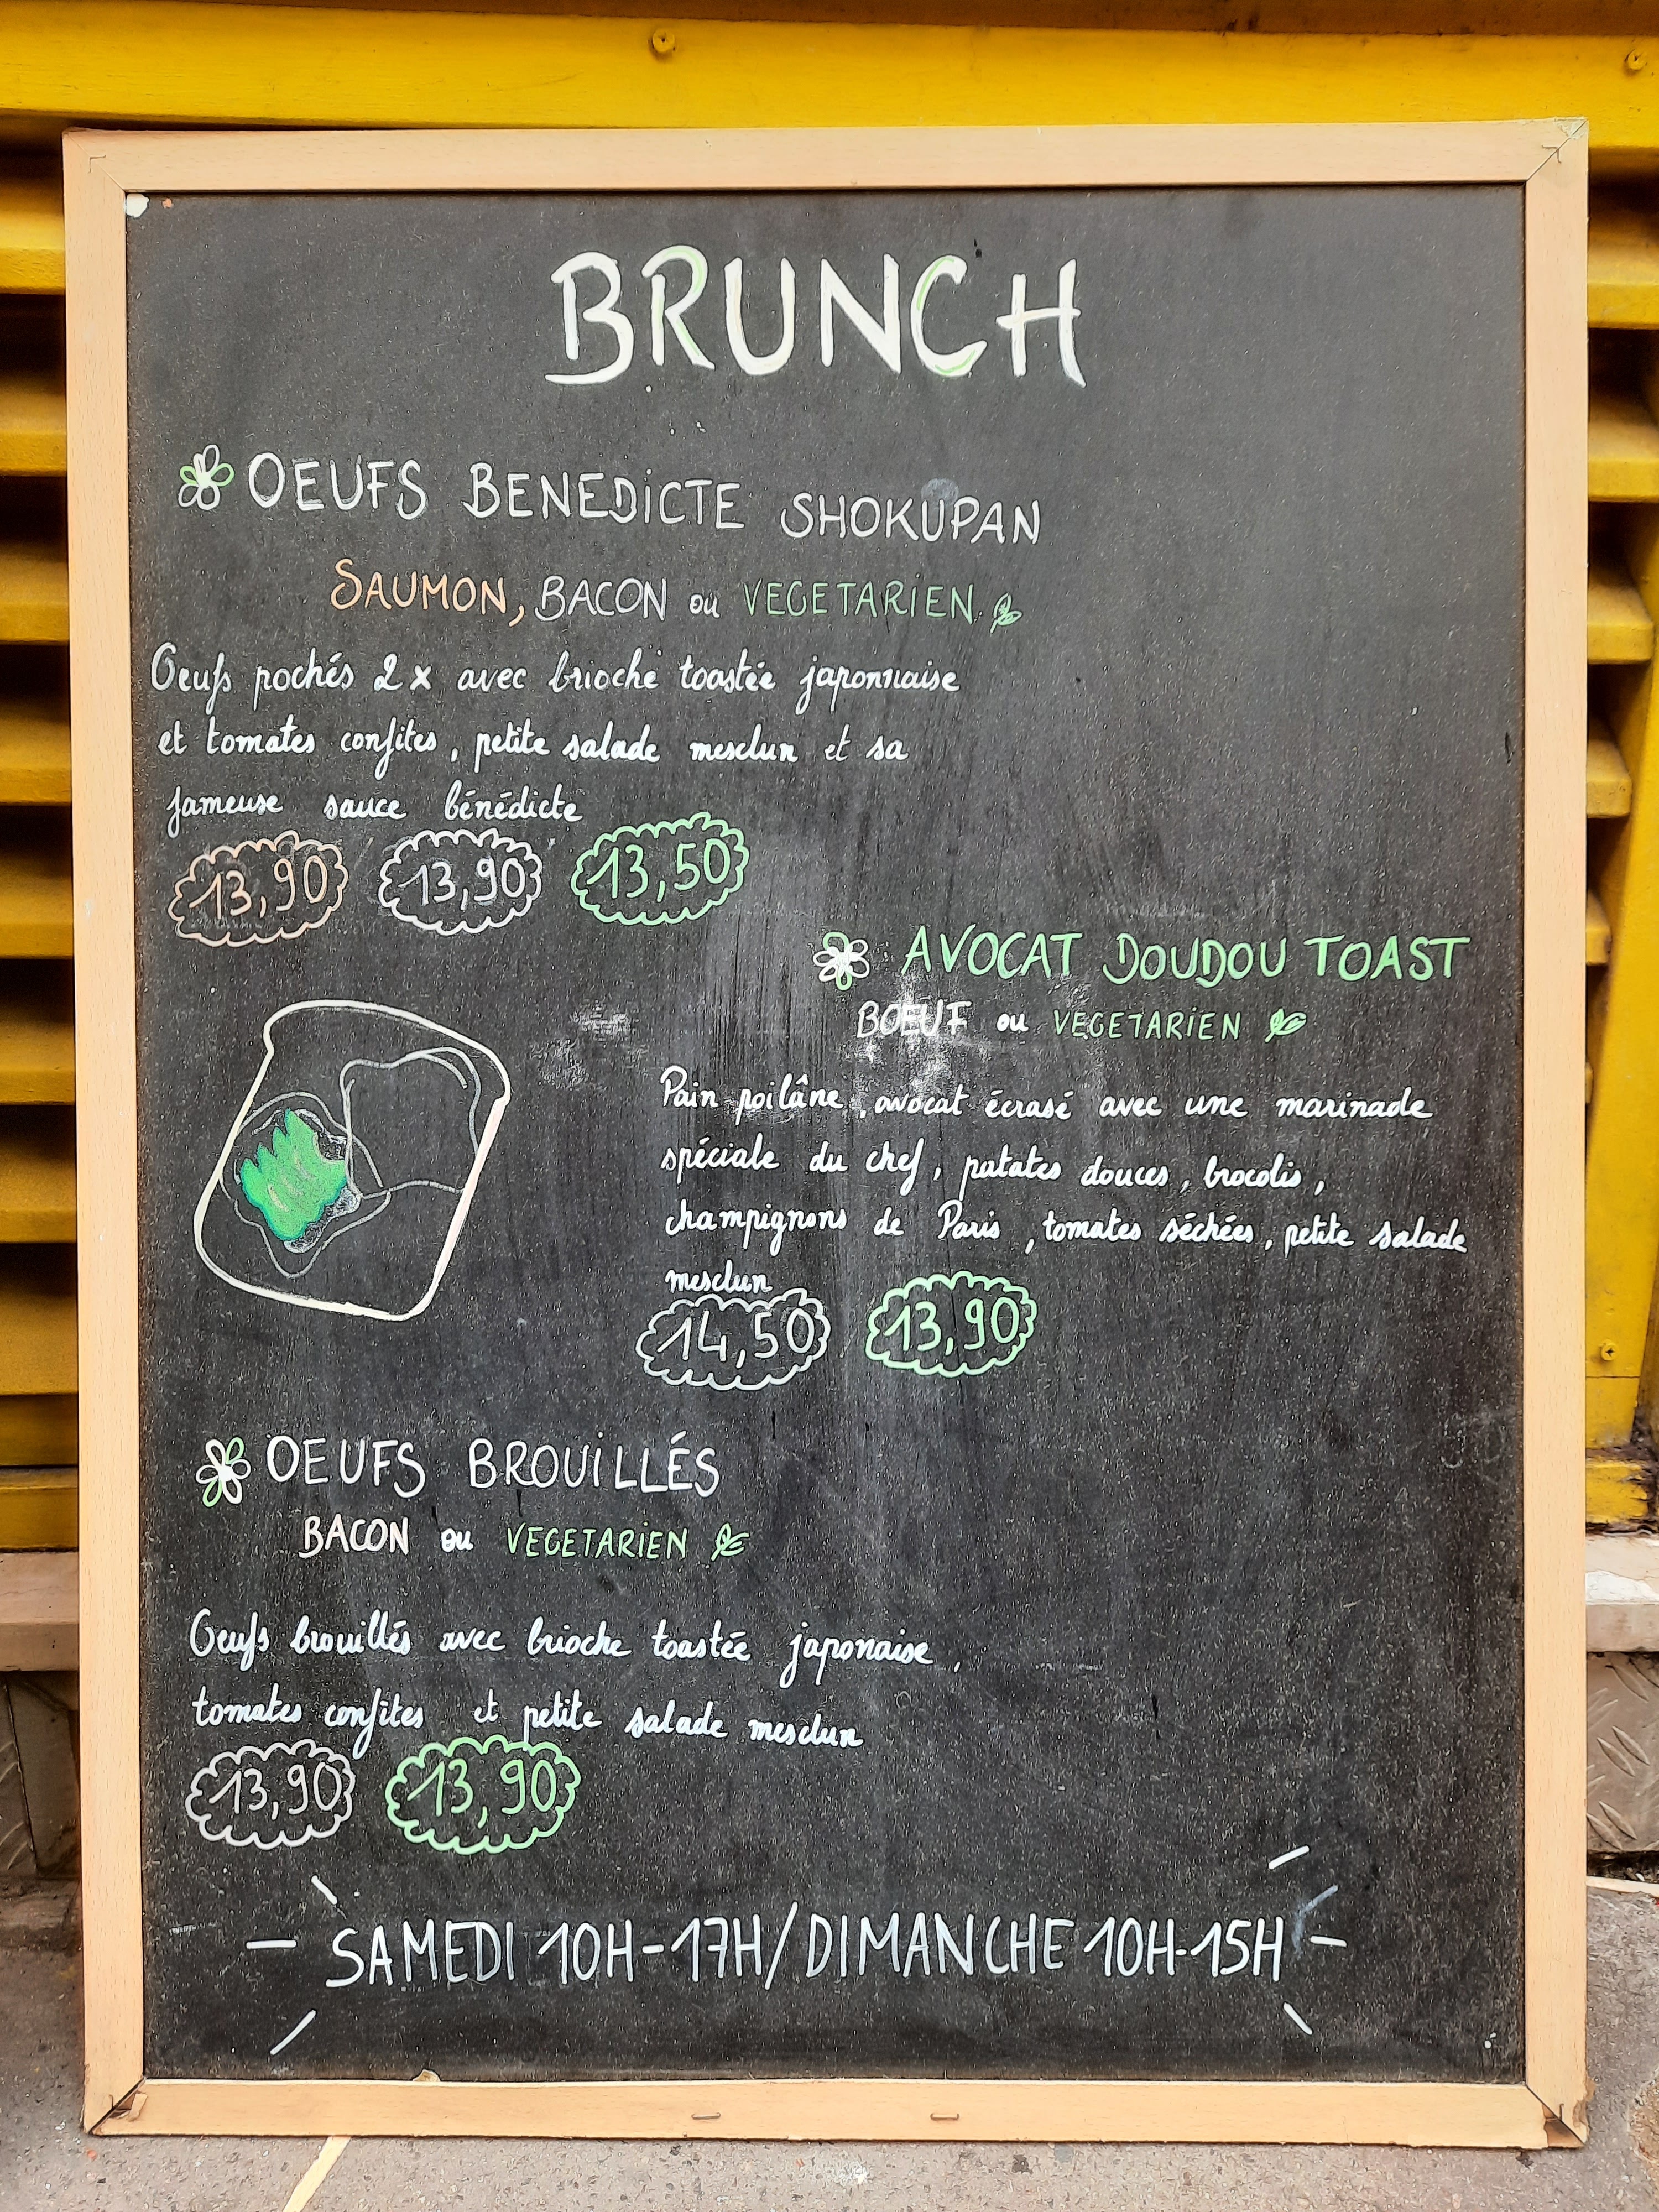 BRUNCH
OEUFS BENEDICTE SHOKUPAN
SAUMON, BACON ou VEGETARIEN
Oeufs pochés 2x avec brioche toastée japonnaise
et tomates confites, petite salade mesclun et sa
fameuse sauce bénédicte
13,90 13,90 13,50
AVOCAT DOUDOU TOAST
BOEUF ou VEGETARIEN
Pain poilâne, avocat écrasé avec une marinade
spéciale du chef, patates douces, brocolis,
champignons de Paris, tomates séchées, petite salade
mesclun
14,50 13,90
OEUFS BROUILLÉS
BACON ou VEGETARIEN
Oeufs brouillés avec brioche toastée japonaise,
tomates confites et petite salade mesclun
13,90 13,90
SAMEDI 10H-17H/DIMANCHE 10H-15H